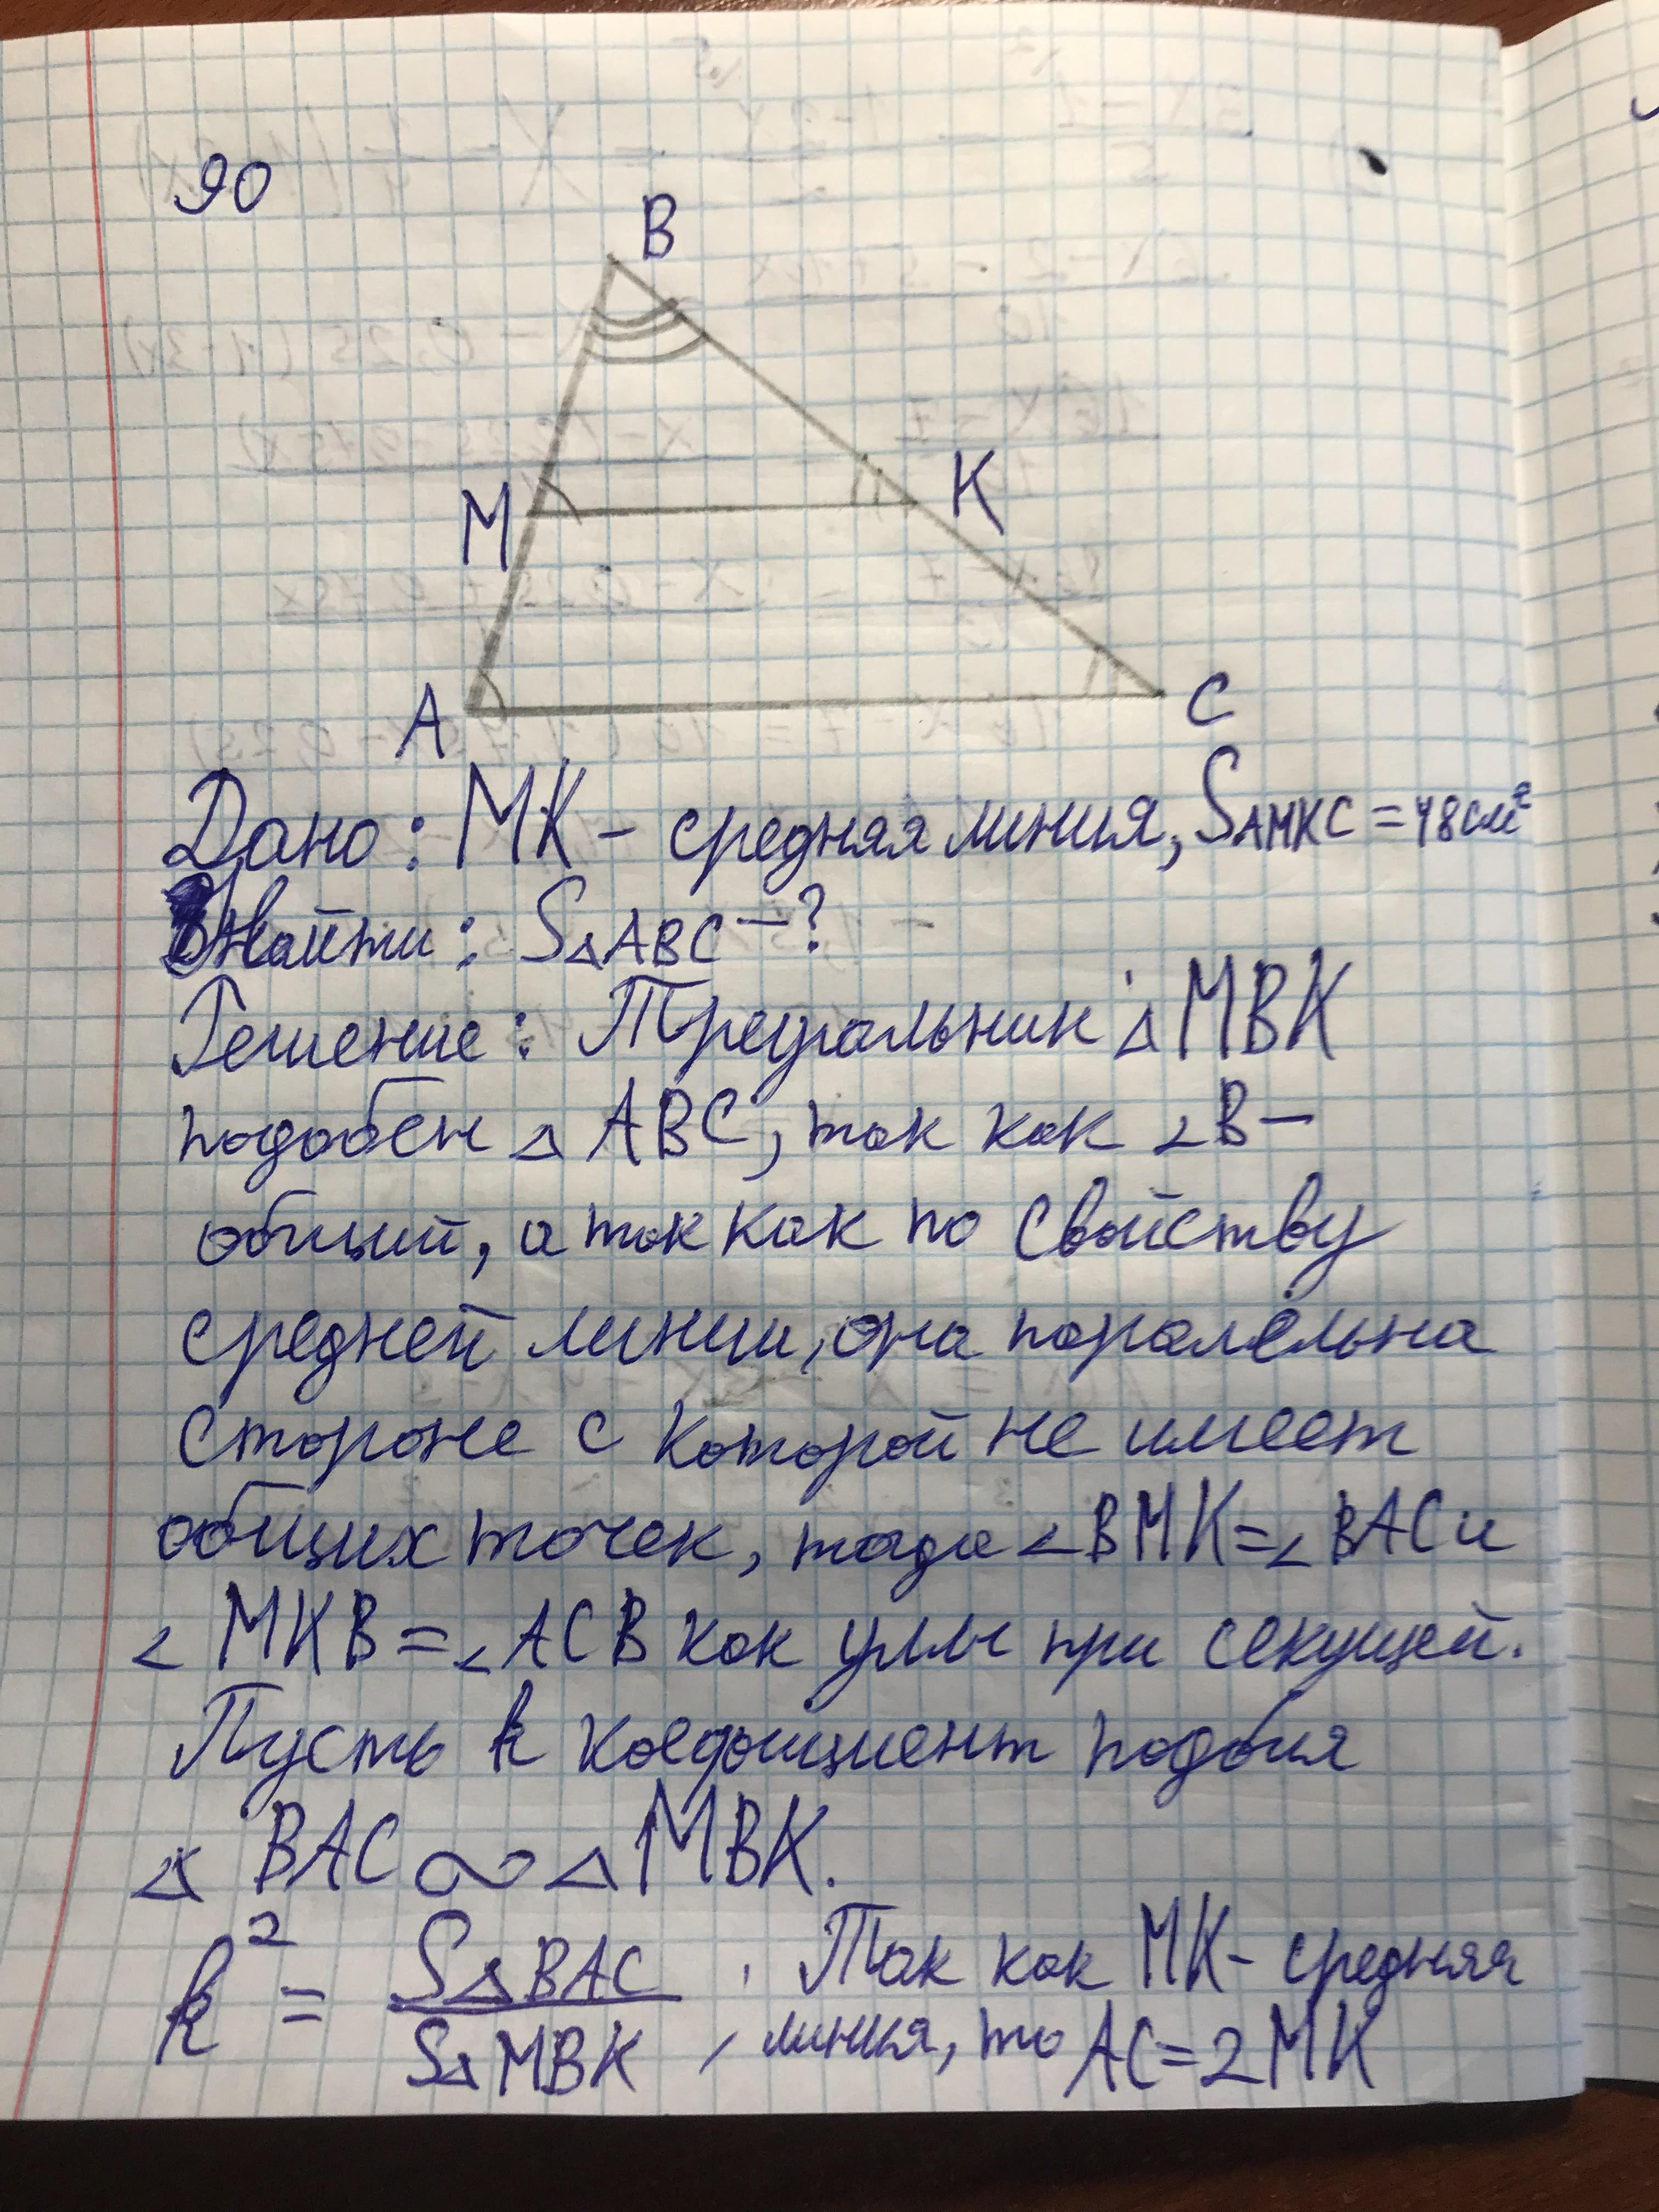 90
B
M
K
A
C
Дано: MK - средняя линия, SAMKC = 48 см²
Найти: S△ABC - ?
Решение: Треугольник △MBK
подобен △ABC, так как ∠B -
общий, а так как по свойству
средней линии, она паралельна
стороне с которой не имеет
общих точек, тогда ∠BMK=∠BAC и
∠MKB=∠ACB как углы при секущей.
Пусть k коедфициент подобия
△BAC ∾ △MBK.
k² = S△BAC / S△MBK, Так как MK - средняя
линия, то AC=2MK